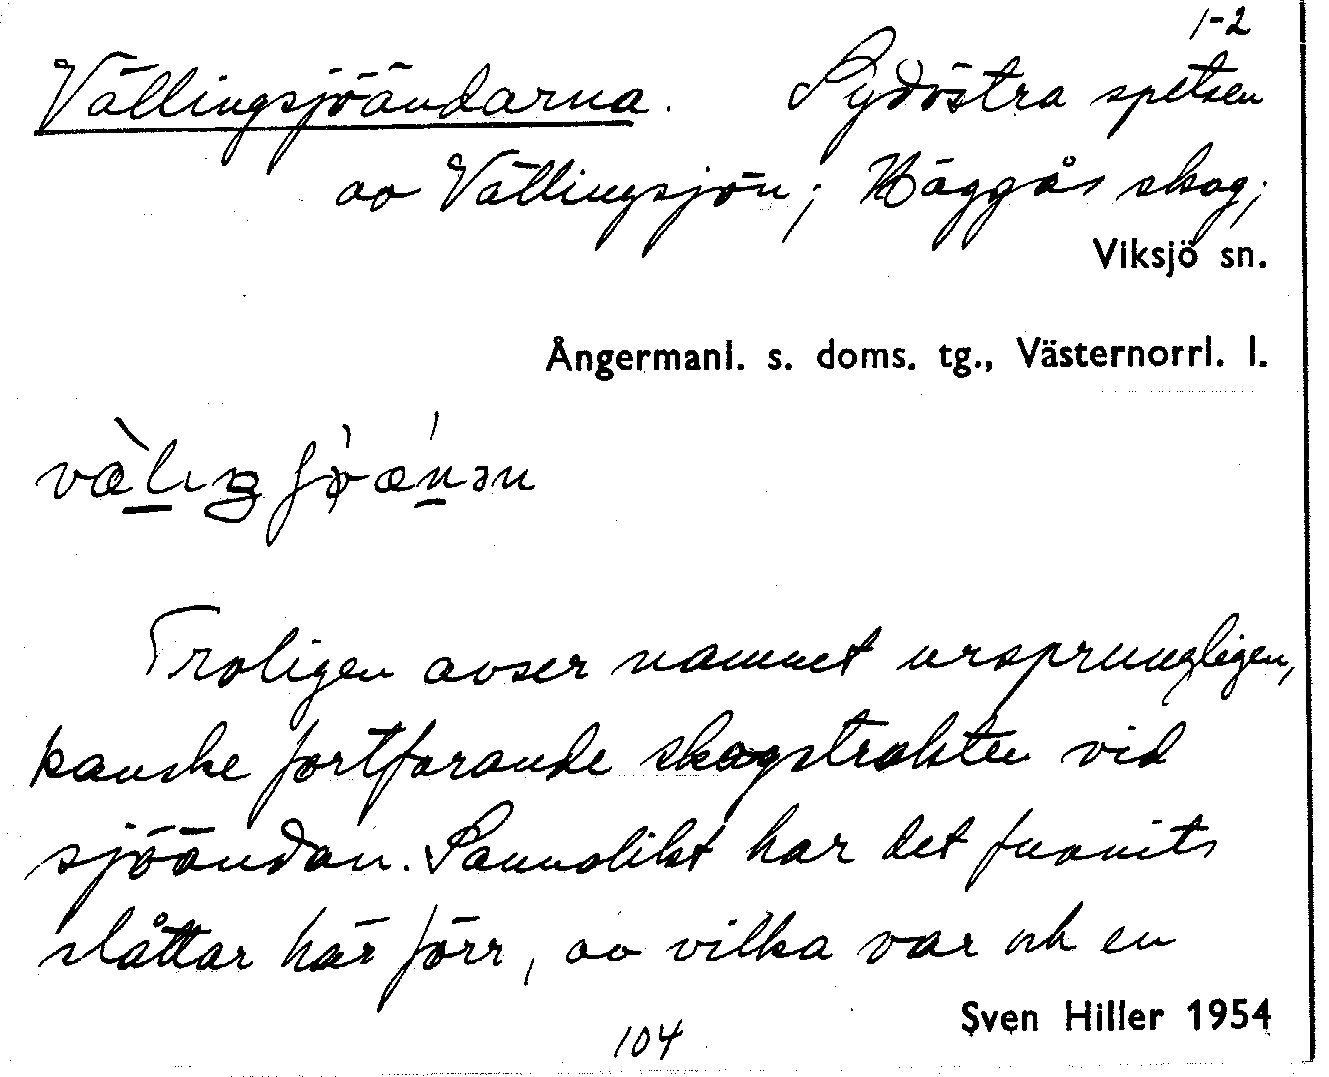 1-2
Vällingsjöändarna. Sydöstra spetsen
av Vällingsjön; Häggås skog;
Viksjö sn.
Ångermanl. s. doms. tg., Västernorrl. l.
Troligen avser namnet ursprungligen,
kanske fortfarande skogstrakten vid
sjöändan. Sannolikt har det funnits
slåttar här förr, av vilka var och en
Sven Hiller 1954
104